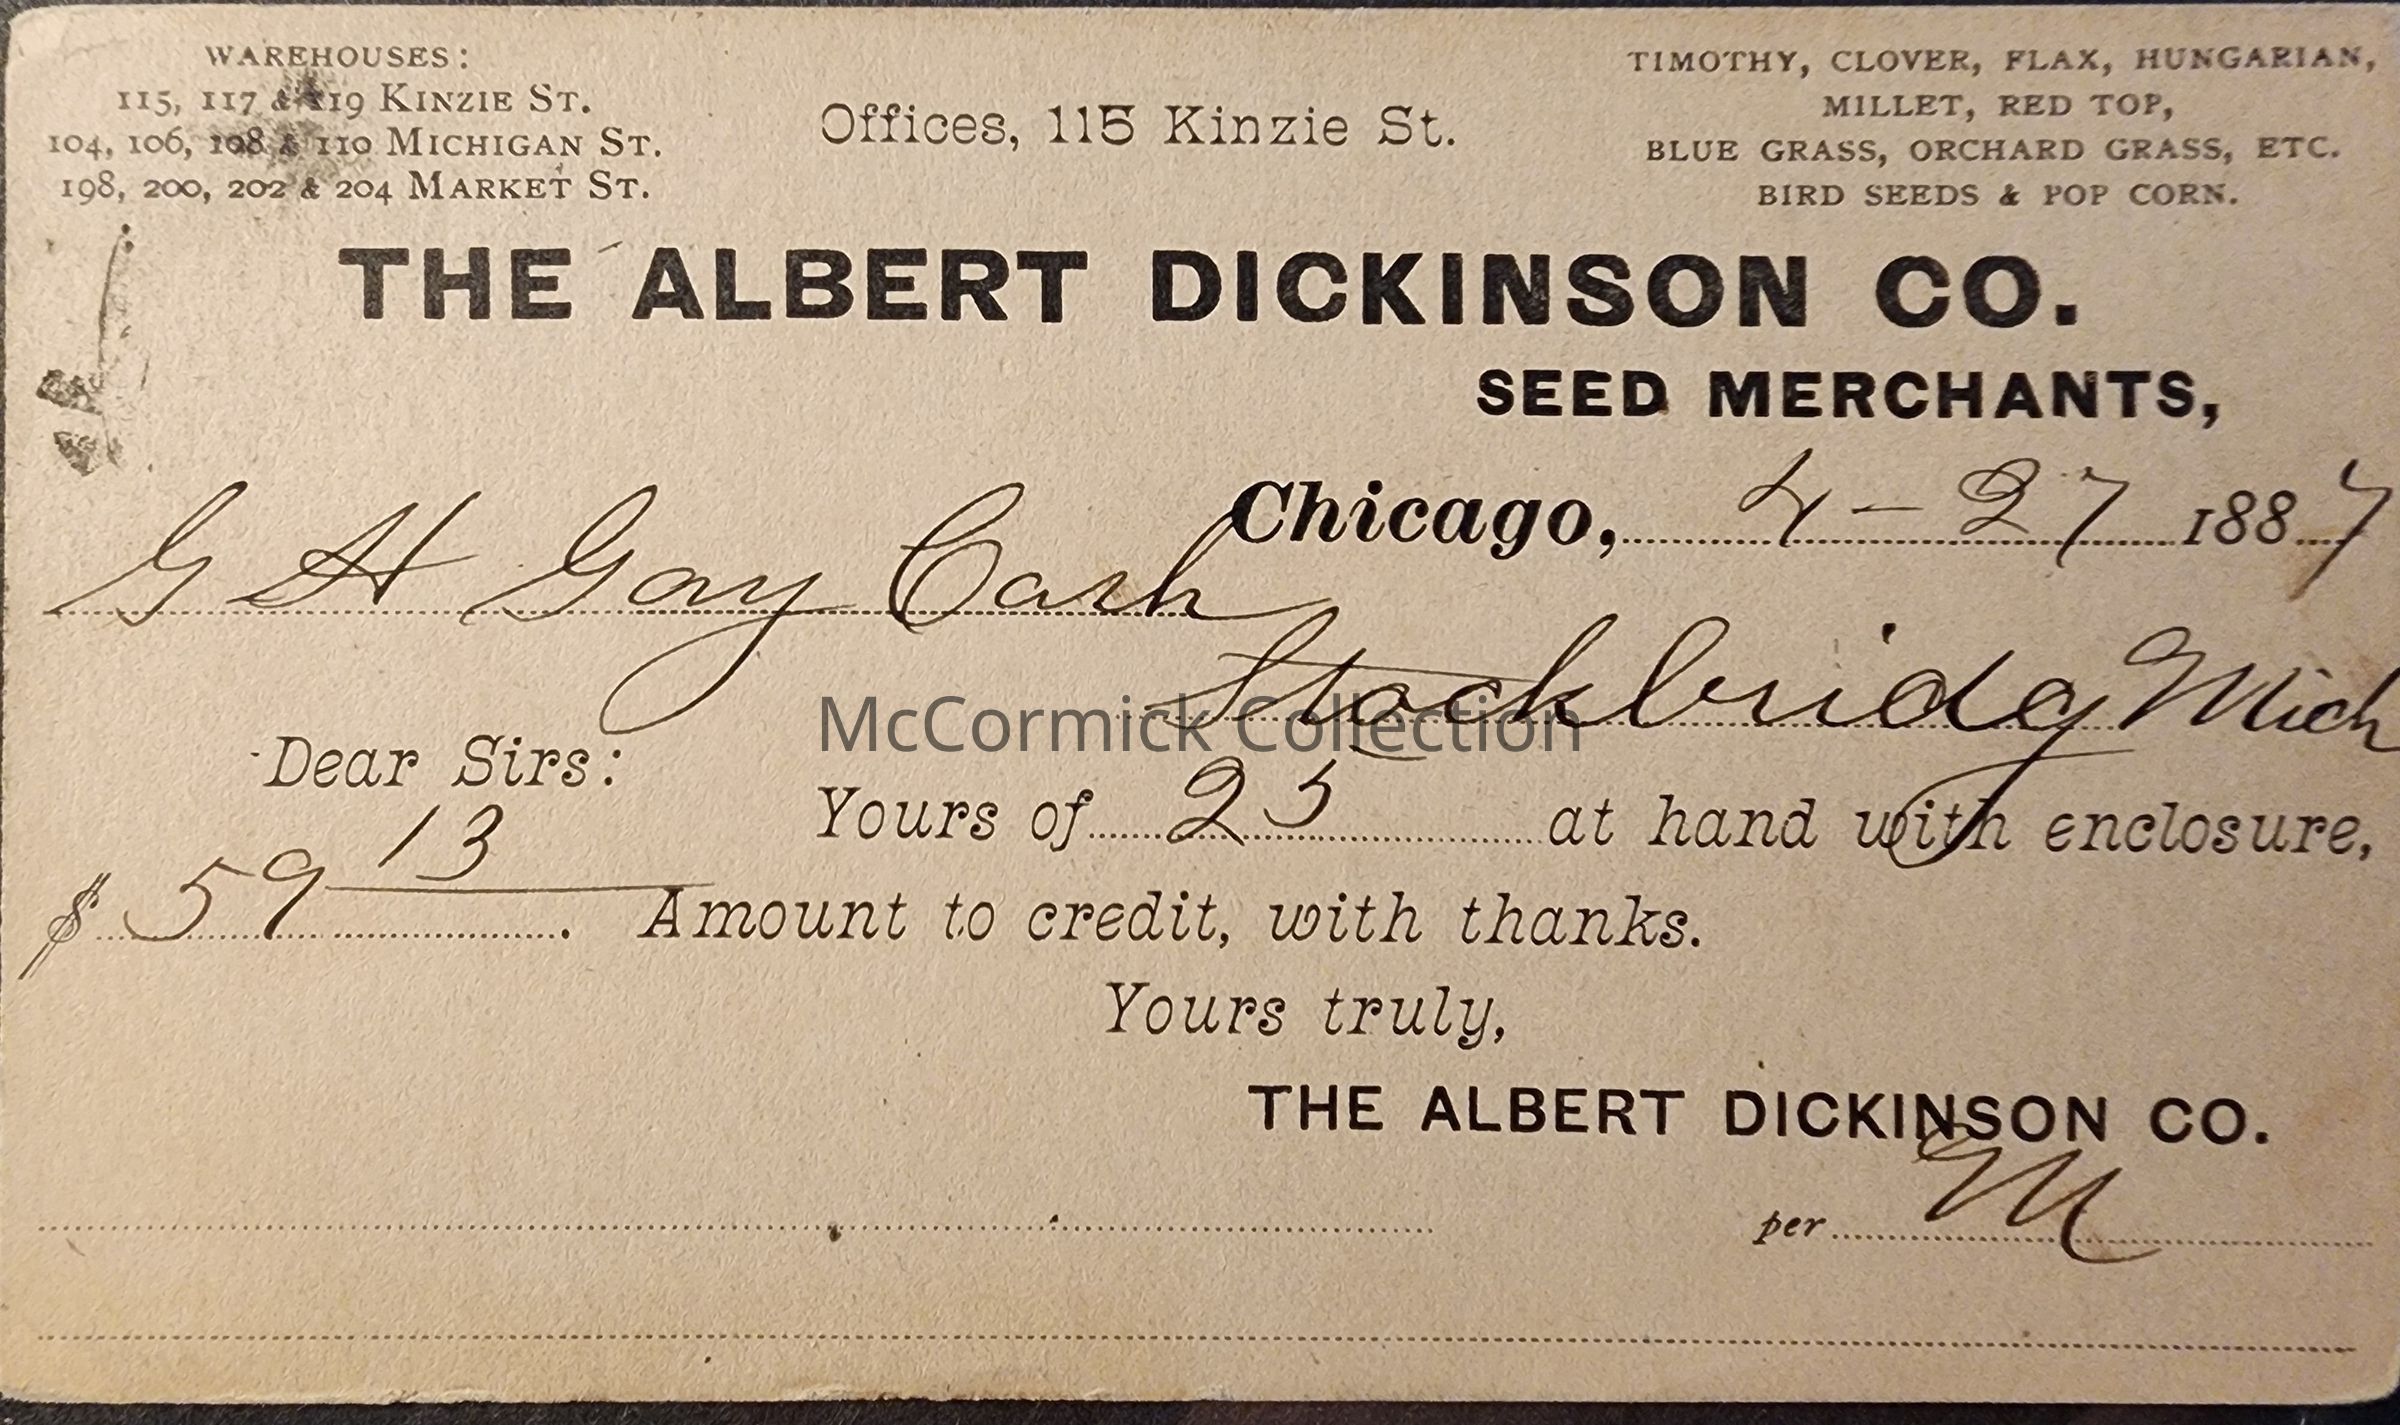 WAREHOUSES:
115, 117 & 119 KINZIE ST.
104, 106, 108 & 110 MICHIGAN ST.
198, 200, 202 & 204 MARKET ST.
Offices, 115 Kinzie St.
TIMOTHY, CLOVER, FLAX, HUNGARIAN,
MILLET, RED TOP,
BLUE GRASS, ORCHARD GRASS, ETC.
BIRD SEEDS & POP CORN.
THE ALBERT DICKINSON CO.
SEED MERCHANTS,
Chicago, 4-27 1887
G H Gay Cash
Stockbridg Mich
McCormick Collection
Dear Sirs:
Yours of 25 at hand with enclosure,
$ 59 13. Amount to credit, with thanks.
Yours truly,
THE ALBERT DICKINSON CO.
per M